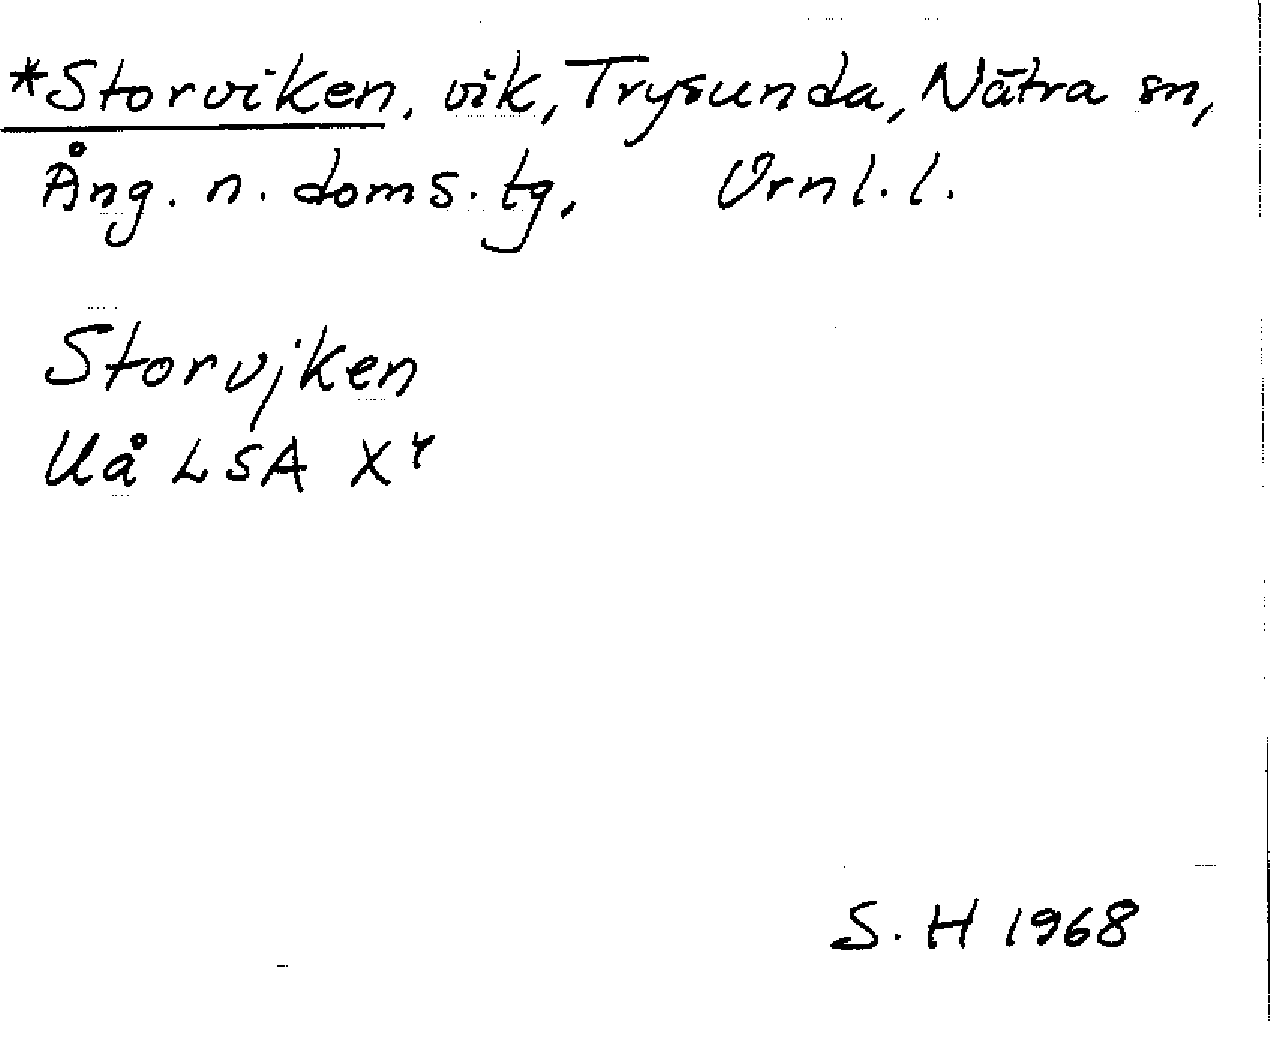 *Storviken, vik, Trysunda, Nätra sn,
Ång. n. doms. tg, Vrnl. l.
Storvjken
Uå LSA X⁴
S. H 1968